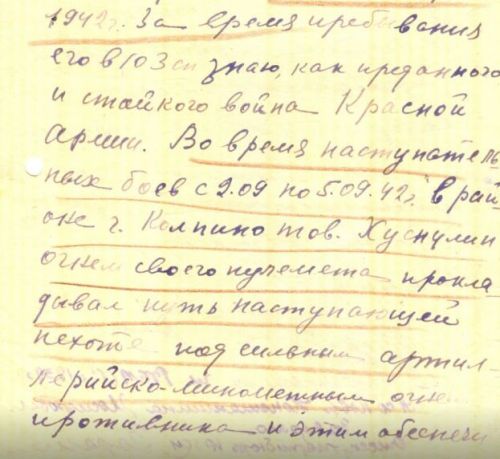 1942г. За время пребывания
его в 103 сп знаю, как преданного
и стойкого война Красной
Армии. Во время наступатель
ных боев с 2.09 по 5.09.42г. в рай
оне г. Колпино тов. Хуснулин
огнем своего пулемета прокла
дывал путь наступающей
пехоте под сильным артил-
лерийско-минометным огнем
противника и этим обеспечи